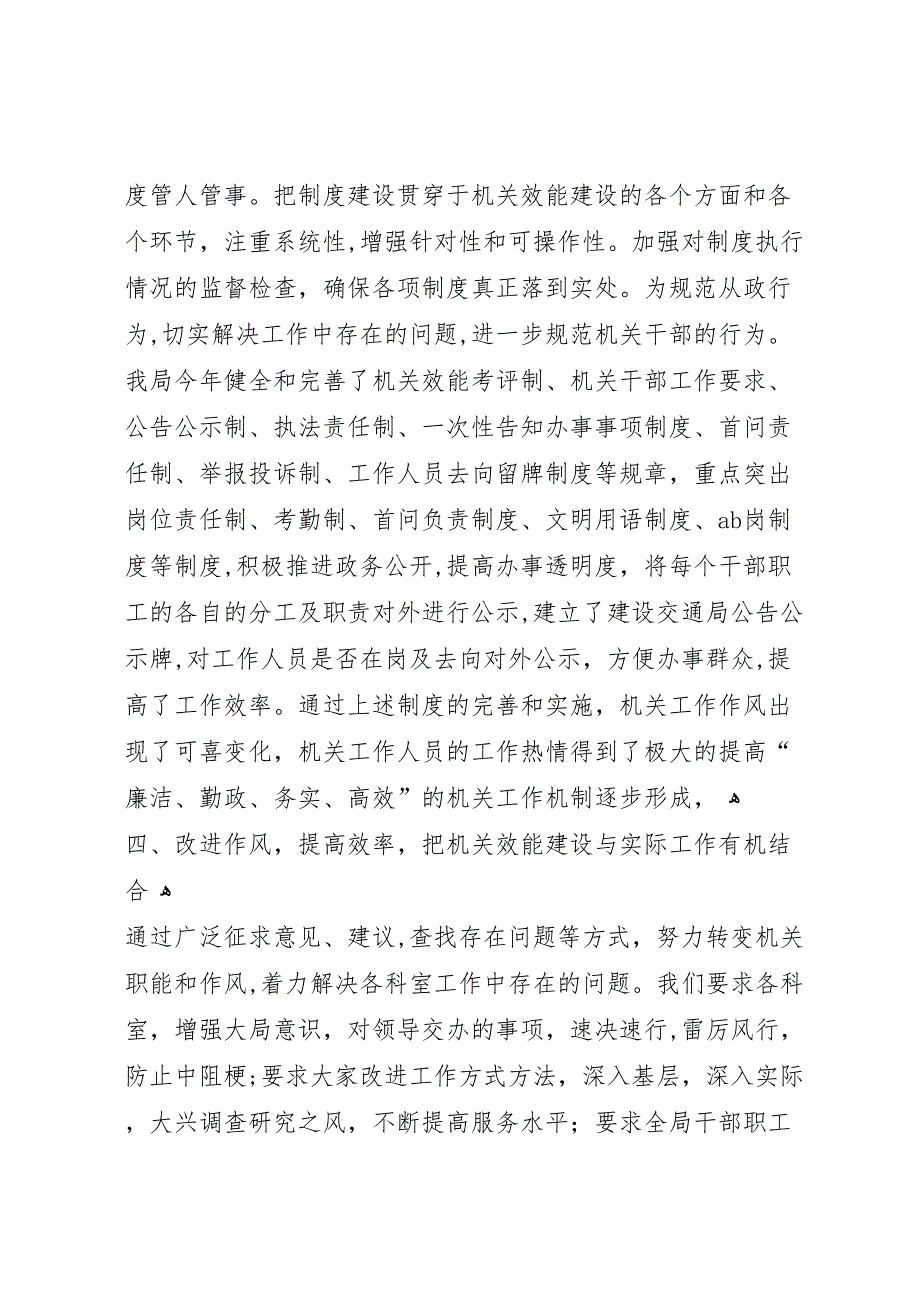 度管人管事。把制度建设贯穿于机关效能建设的各个方面和各
个环节，注重系统性,增强针对性和可操作性。加强对制度执行
情况的监督检查，确保各项制度真正落到实处。为规范从政行
为,切实解决工作中存在的问题,进一步规范机关干部的行为。
我局今年健全和完善了机关效能考评制、机关干部工作要求、
公告公示制、执法责任制、一次性告知办事事项制度、首问责
任制、举报投诉制、工作人员去向留牌制度等规章，重点突出
岗位责任制、考勤制、首问负责制度、文明用语制度、ab岗制
度等制度,积极推进政务公开,提高办事透明度，将每个干部职
工的各自的分工及职责对外进行公示,建立了建设交通局公告公
示牌,对工作人员是否在岗及去向对外公示，方便办事群众,提
高了工作效率。通过上述制度的完善和实施，机关工作作风出
现了可喜变化，机关工作人员的工作热情得到了极大的提高“
廉洁、勤政、务实、高效”的机关工作机制逐步形成，ﻫ
四、改进作风，提高效率，把机关效能建设与实际工作有机结
合ﻫ
通过广泛征求意见、建议,查找存在问题等方式，努力转变机关
职能和作风,着力解决各科室工作中存在的问题。我们要求各科
室，增强大局意识，对领导交办的事项，速决速行,雷厉风行，
防止中阻梗;要求大家改进工作方式方法，深入基层，深入实际
，大兴调查研究之风，不断提高服务水平；要求全局干部职工